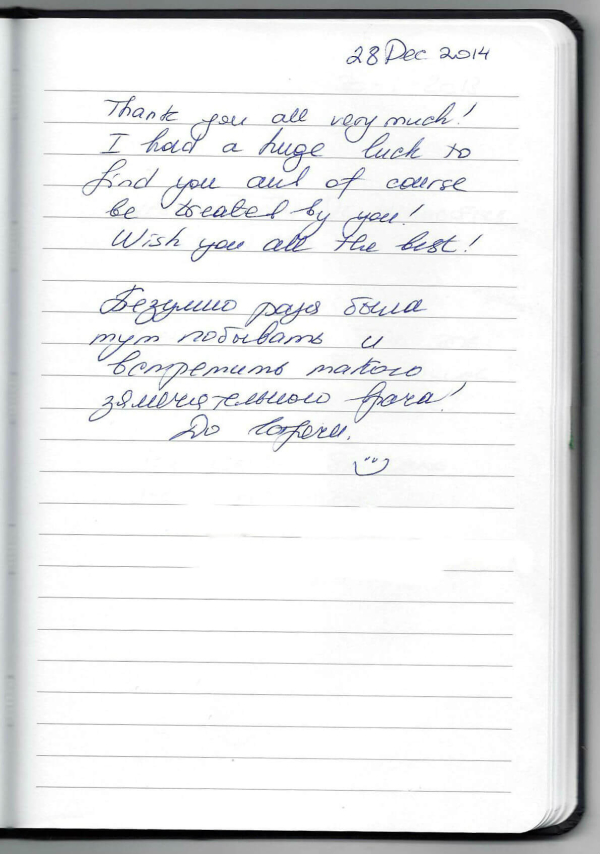 28 Dec 2014
Thank you all very much!
I had a huge luck to
find you and of course
be treated by you!
Wish you all the best!
Безумно рада была
тут побывать и
встретить такого
замечательного врача!
До встречи.